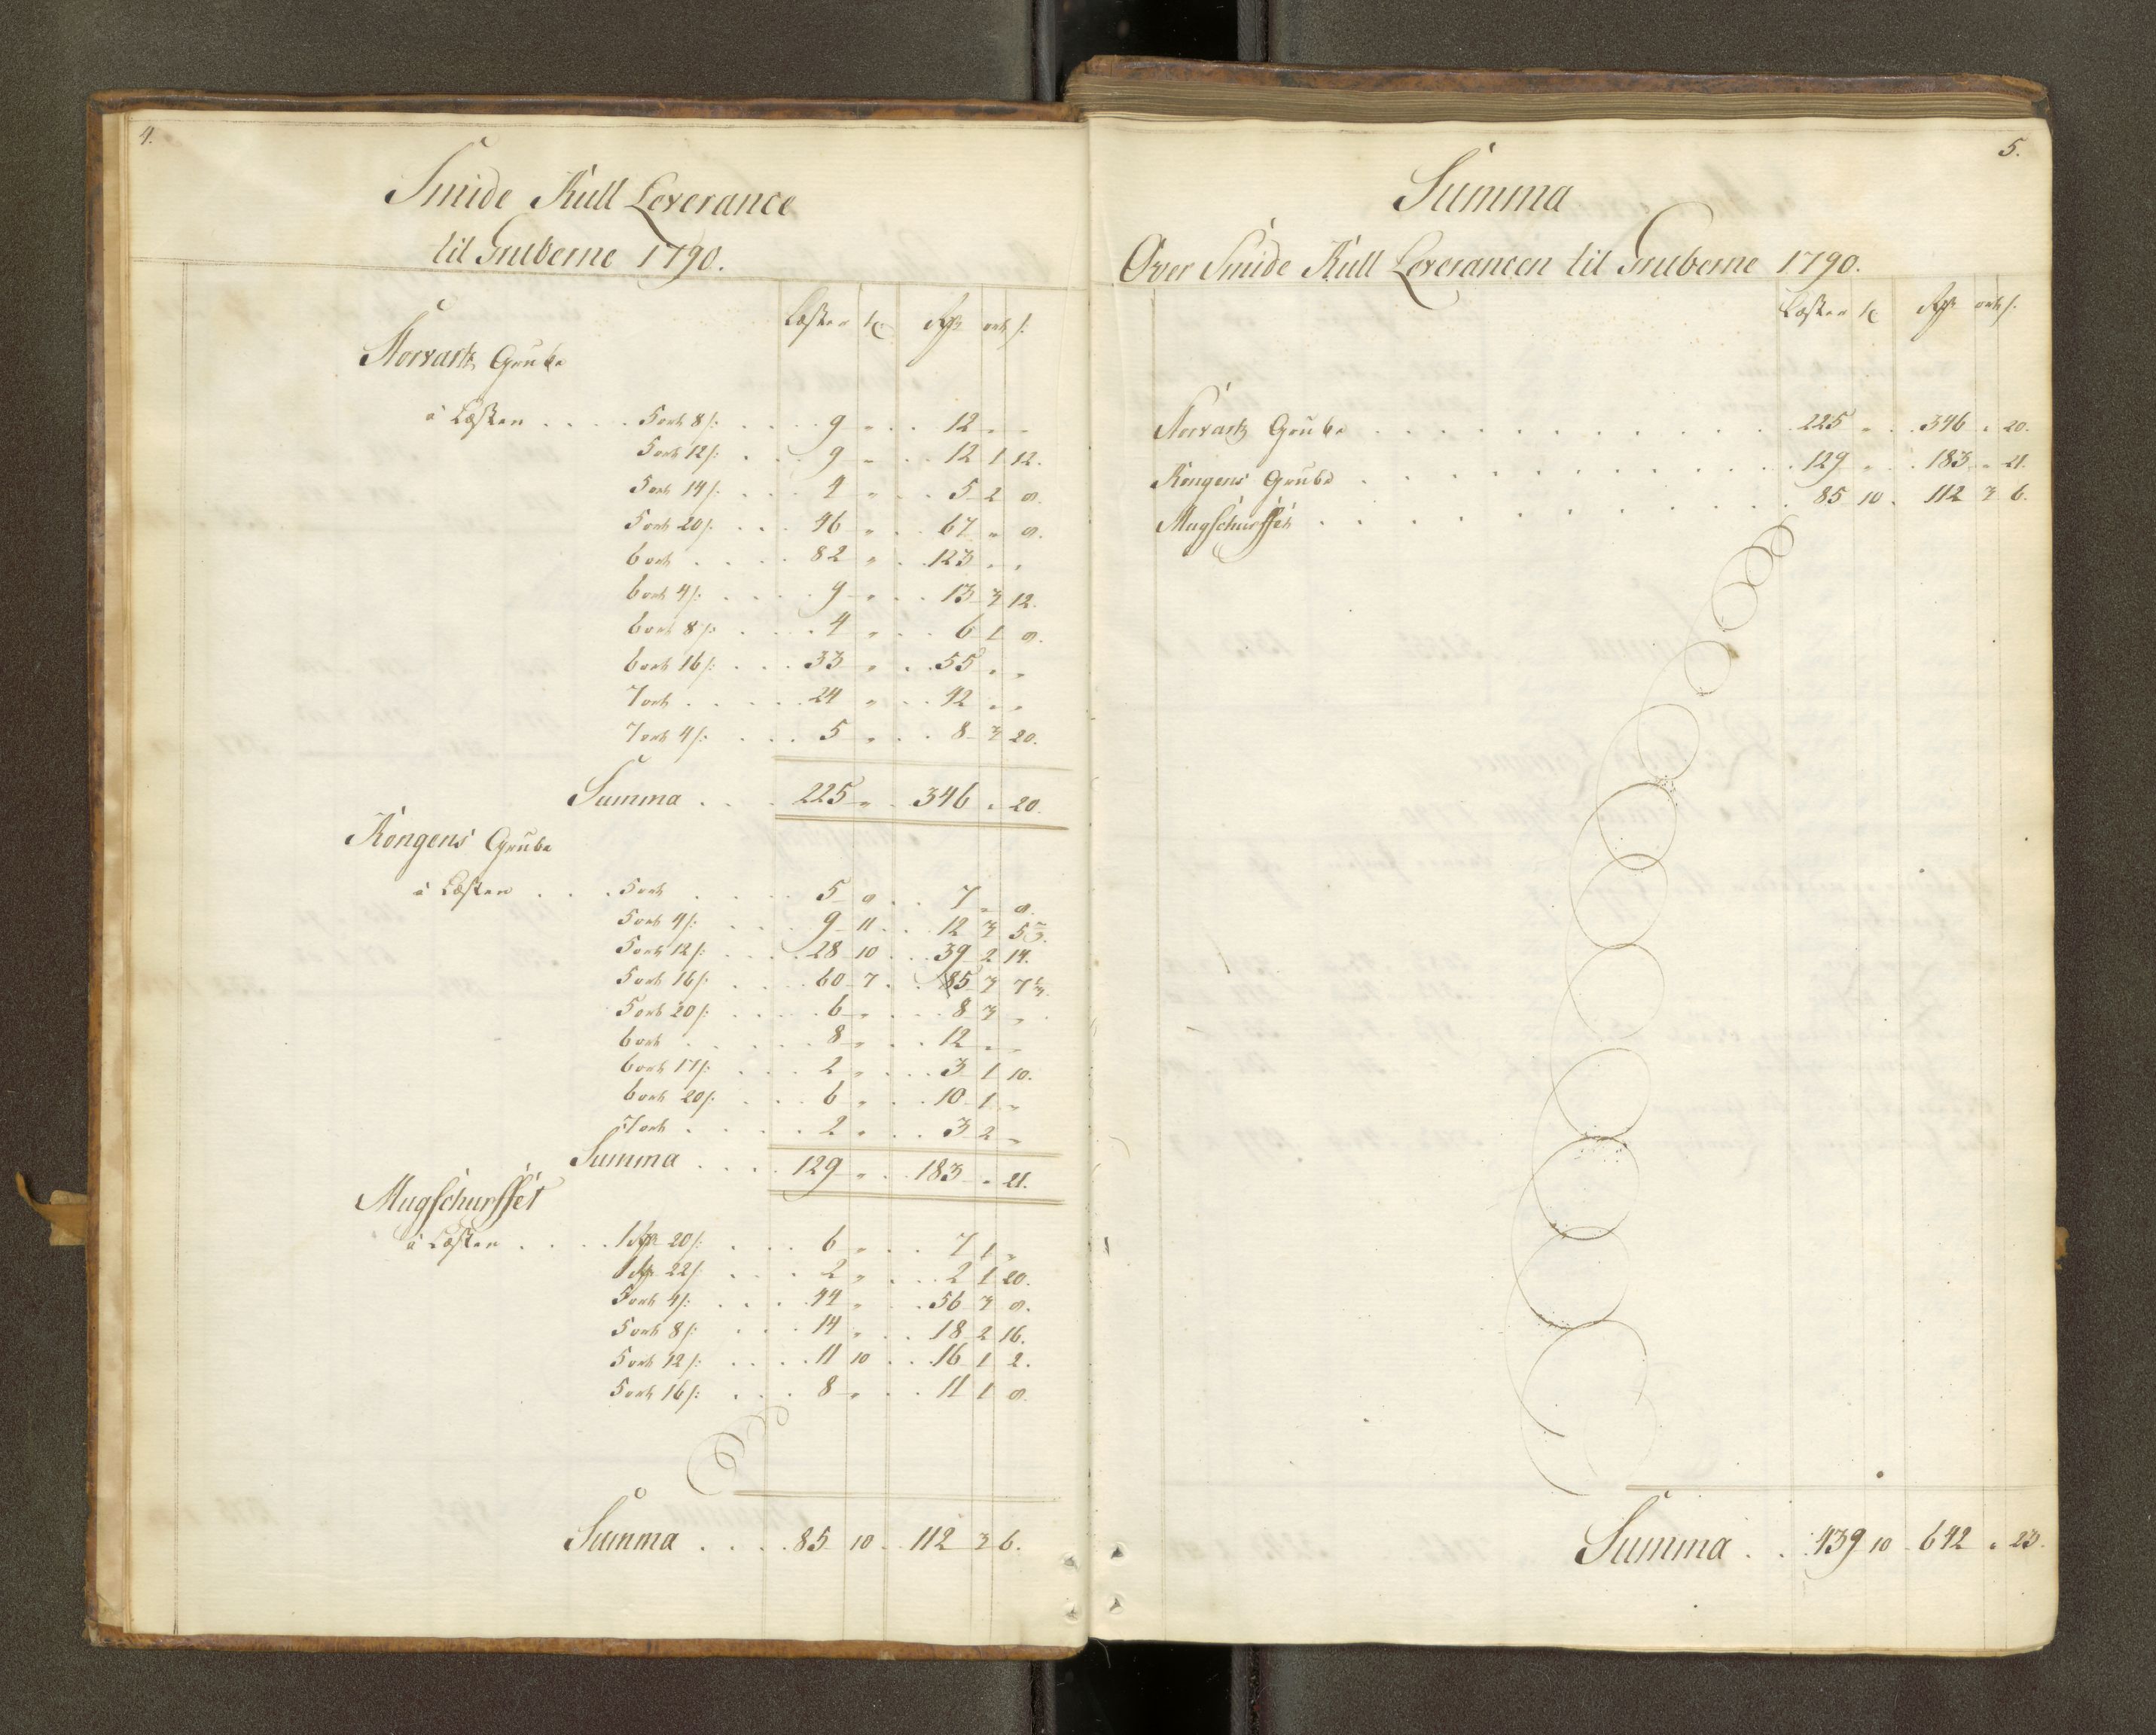 4.
Smide Kull Leverance
til Gruberne 1790.
Læster tr Rdr ort s:
Storvartz Grube
à Læsten . . . . 5 ort 8 s: . . . . 9 " . . 12 " "
5 ort 12 s: . . . 9 " . . 12 1 12.
5 ort 14 s: . . . 4 " . . 5 2 8.
5 ort 20 s: . . . 46 " . . 67 " 8.
6 ort . . . . 82 " . . 123 " "
6 ort 4 s: . . . . 9 " . . 13 3 12.
6 ort 8 s: . . . . 4 " . . 6 1 8.
6 ort 16 s: . . . 33 " . . 55 " "
7 ort . . . . . 24 " . . 42 " "
7 ort 4 s: . . . 5 " . . 8 3 20.
Summa . . . 225 " . 346 " 20.
Kongens Grube
à Læsten . . . 5 ort . . . . . 5 8 . . 7 " 8.
5 ort 4 s: . . . . 9 11 . . 12 3 5 2/3.
5 ort 12 s: . . . . 28 10 . . 39 2 14.
5 ort 16 s: . . . . 60 7 . . 85 3 7 1/3.
5 ort 20 s: . . . . 6 " . . . 8 3 "
6 ort . . . . . 8 " . . 12 " "
6 ort 17 s: . . . 2 " . . . 3 1 10.
6 ort 20 s: . . . 6 " . . 10 1 "
7 ort . . . . . 2 " . . 3 2 "
Summa . . . . 129 " . 183 " 21.
Mugschurffet
à Læsten . . . . 1 Rdr 20 s: . . . 6 " . . 7 1 "
1 Rdr 22 s: . . . 2 " . . . 2 1 20.
5 ort 4 s: . . . . 44 " . . 56 3 8.
5 ort 8 s: . . . 14 " . . 18 2 16.
5 ort 12 s: . . . . 11 10 . . 16 1 2.
5 ort 16 s: . . . 8 " . . 11 1 8.
Summa . . . . 85 10 . . 112 3 6.
5.
Summa
Over Smide Kull Leverancen til Gruberne 1790.
Læster tr Rdr ort s:
Storvartz Grube . . . . . . . . . . . . 225 " . 346 " 20.
Kongens Grube . . . . . . . . . . . . 129 " . 183 " 21.
Mugschurffet . . . . . . . . . . . . 85 10 . 112 3 6.
Summa . . . 439 10 . 642 " 23.